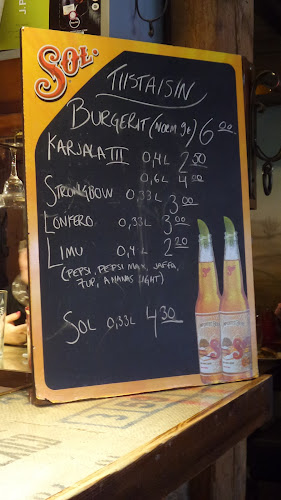 SOL.
TIISTAISIN
BURGERIT (NORM 9€) 6.00
KARJALA III 0,4L 2 50
0,6L 4 00
STRONGBOW 0,33L 3 00
LONKERO 0,33L 3 00
LIMU 0,4L 2 20
(PEPSI, PEPSI MAX, JAFFA,
7UP, ANANAS LIGHT)
SOL 0,33L 4 30